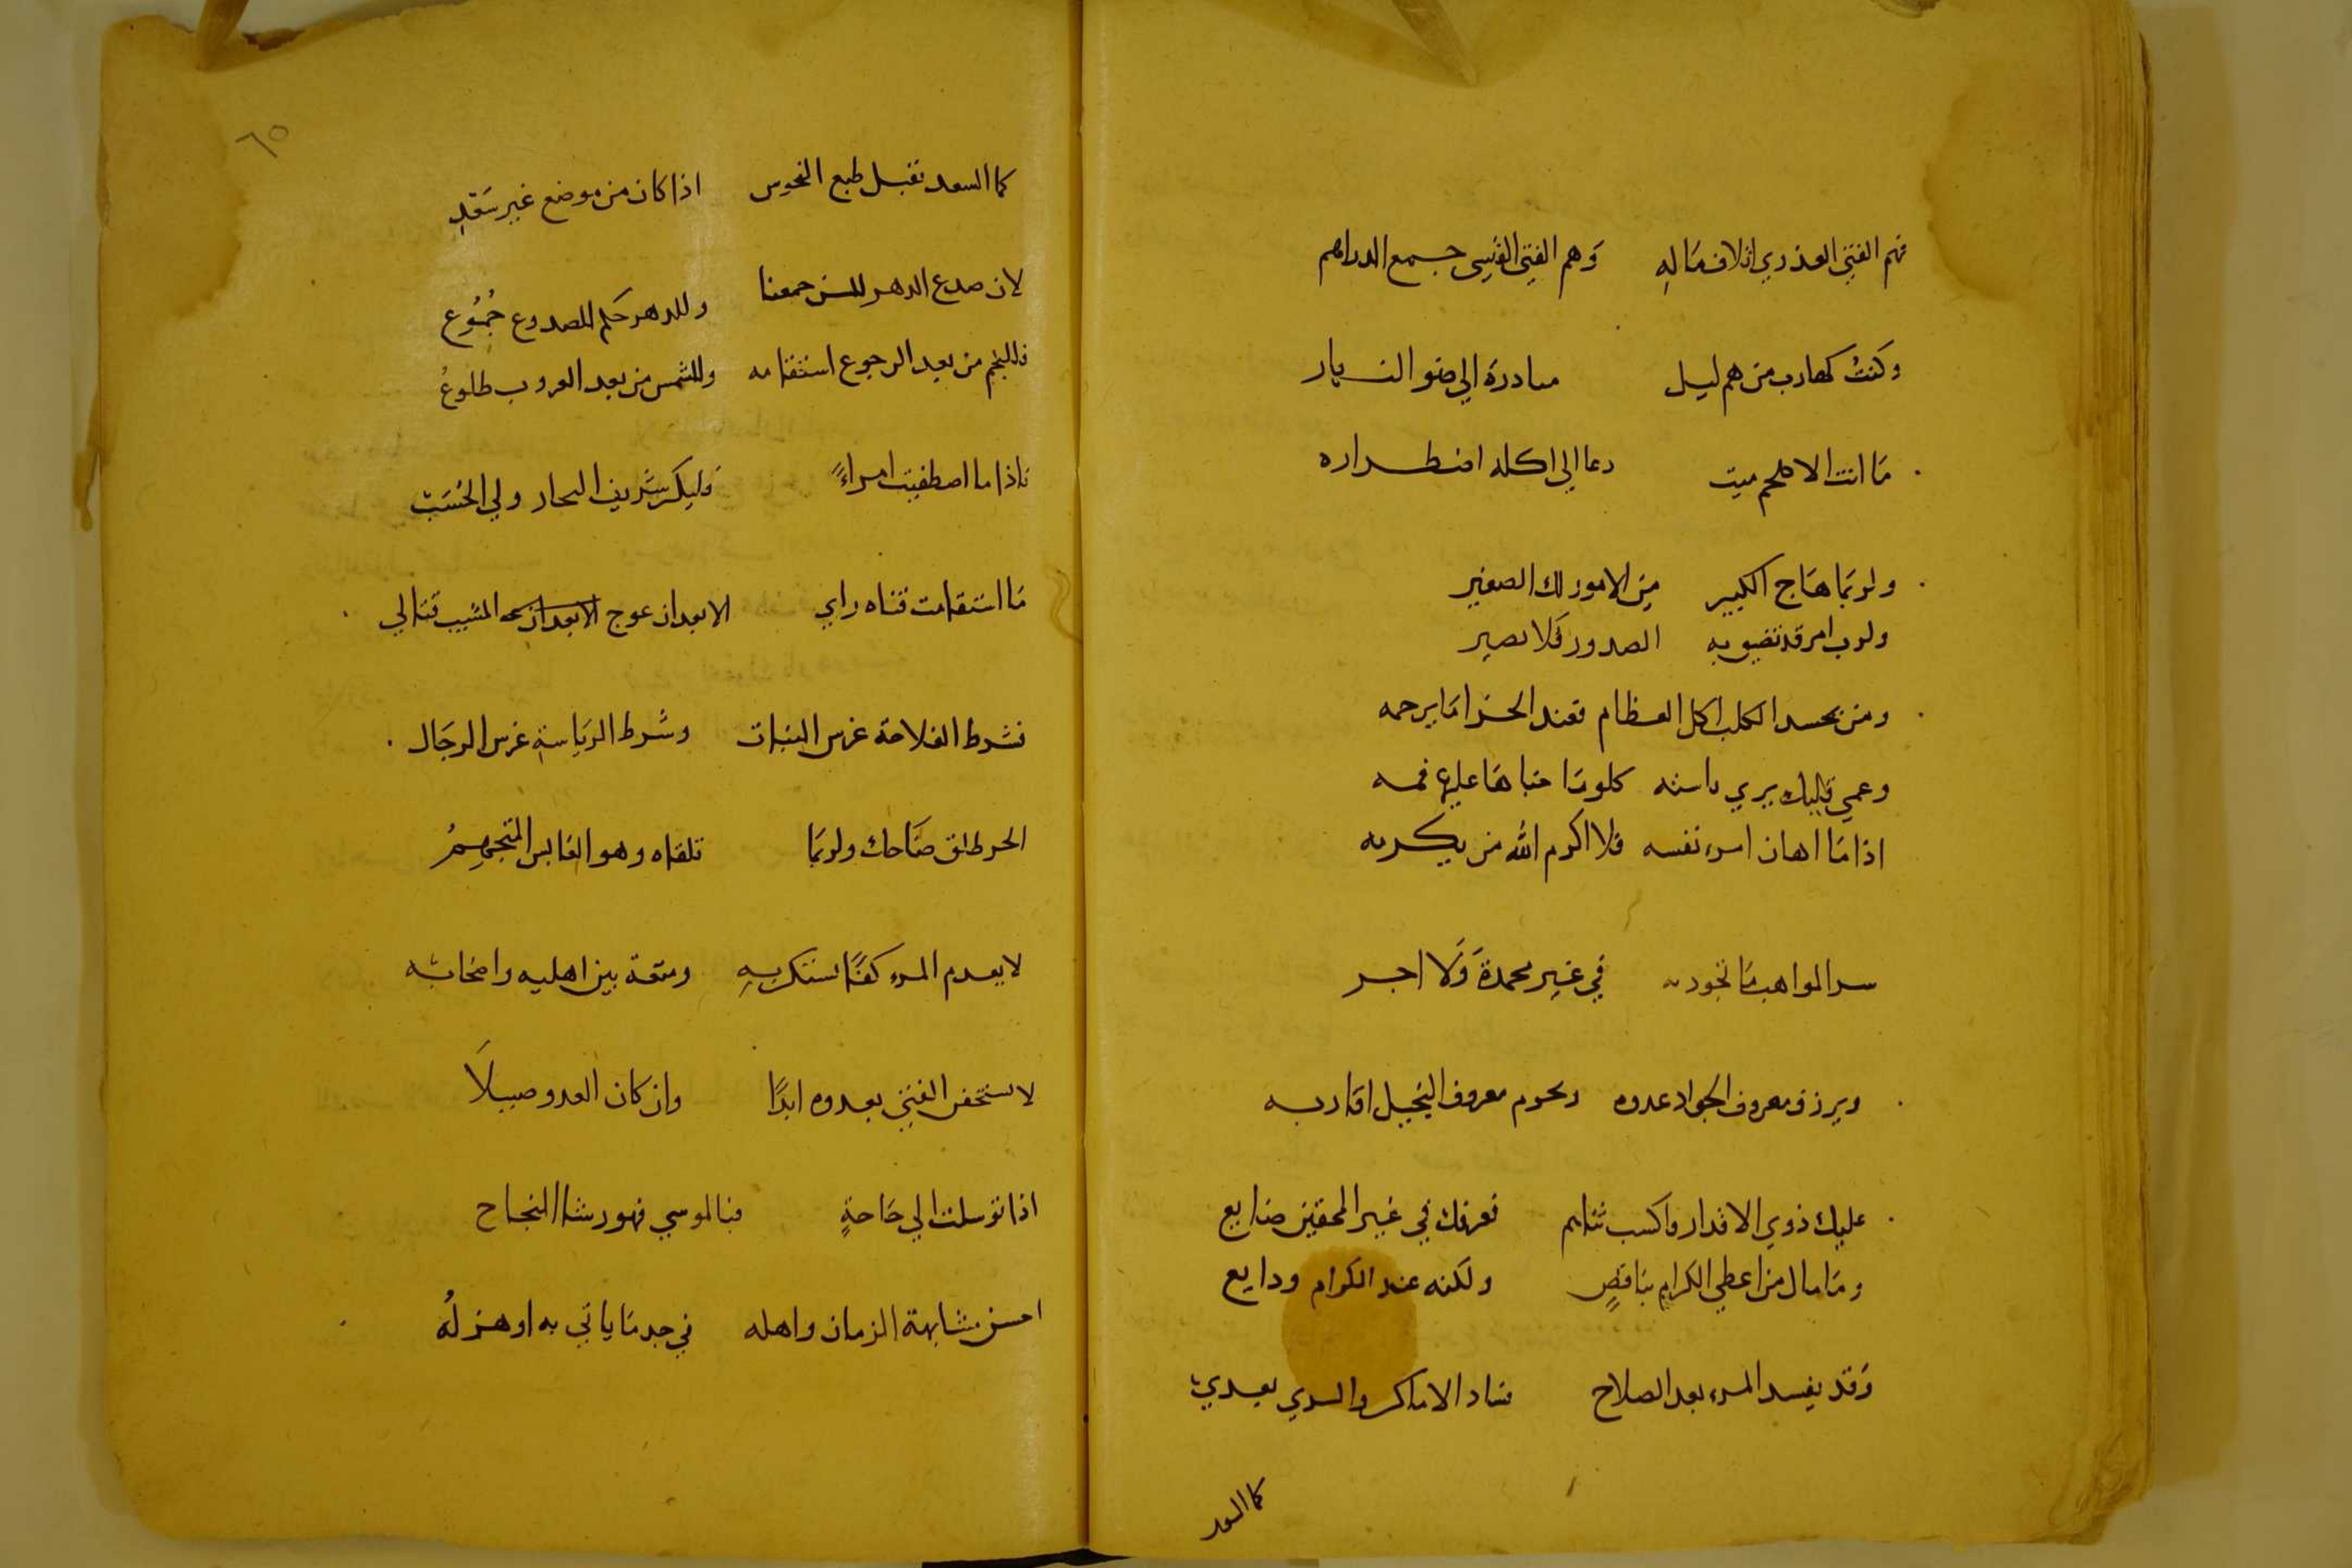 فهم الفتى العذري اتلاف مَالهِ وَهم الفتى القيسي جمع الدراهم
وكنتُ كهارب من هم ليل مبادرة الي ضو النهار
مَا انت الا كلحم ميت دعا الي اكله اضطراره
ولربمَا هَاج الكبير مِن الامور لك الصغير
ولرب امر قد تضيق به الصدور وَلا يصير
ومن يحسد الكلب اكل العظام فعند الخرا مَا يرحمه
وعمي قليل يري باسته كلومًا جناهَا عليها فمه
اذا مَا اهان امرء نفسه فلا اكرم الله من يكرمه
سر المواهب مَا تجود به في غير محمدةَ وَلَا اجر
ويرزق معروف الجواد عدوه ويحرم معروف البخيل اقاربه
عليك ذوي الاقدار فاكسب ثناهم فعرفك في غير المحقين ضايع
ومَا مال من اعطي الكرام بنَاقصٍ ولكنه عند الكرام ودايع
وَقد يفسد المرء بعد الصلاح فساد الاماكن والردي يعدي
كما السعد
٦٥
كما السعد تقبل طبع النحوس اذا كان من موضع غير سَعْدِ
لان صدع الدهر جمعنا وللدهر حكم للصدوع جُمُوع
فللنجم من بعد الرجوع استقامه وللشمس من بعد الغروب طلوعُ
فاذا ما اصطفيت امراءً فليكن شريف النجار ولي الحُسَبْ
مَا استقامت قناه رايي الا بعد ان عوج الا بعد ان عه المشيب قنالي
فشرط الفلاحة غرس النبات وشرط الريَاسةِ غرس الرجَال
الحر طلق ضَاحك ولربمَا تلقاه وهو العابس المتجهِمُ
لا يعدم المرء كفًا يستكن بهِ ومتعة بين اهليه واصحابه
لا تستخفن الفتى بعدوه ابدًا وان كان العدو ضييلَا
اذا توسلت الي حَاجةٍ فبالموسي فهو رشا النجاح
احسن مشابهة الزمان واهله في جد مَا ياتي به او هزلُه